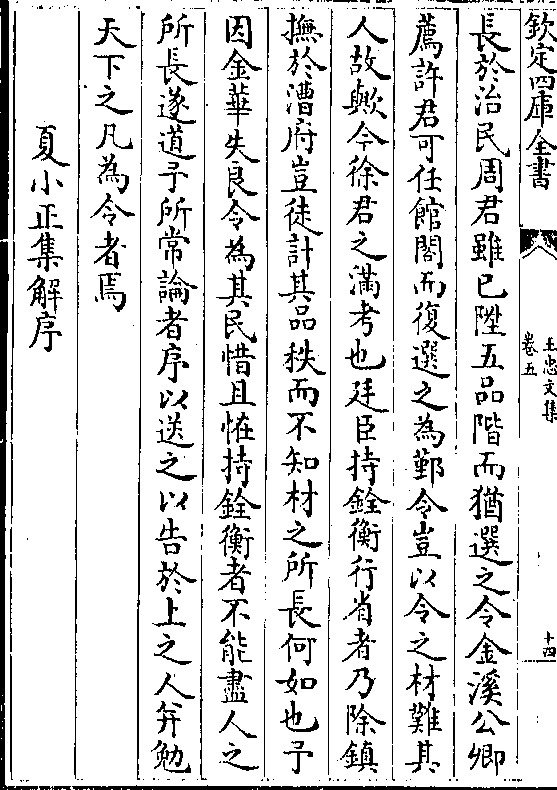 欽定四庫全書
王忠文集
卷五
十四
長於治民周君雖已陞五品階而猶選之令金溪公卿
薦許君可任館閣而復選之為鄞令豈以令之材難其
人故歟今徐君之滿考也廷臣持銓衡行省者乃除鎮
撫於漕府豈徒計其品秩而不知材之所長何如也予
因金華失良令為其民惜且恠持銓衡者不能盡人之
所長遂道予所常論者序以送之以告於上之人并勉
天下之凡為令者焉
夏小正集解序